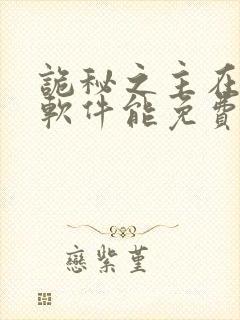 詭秘之主在
軟件能免費
戀紫堇